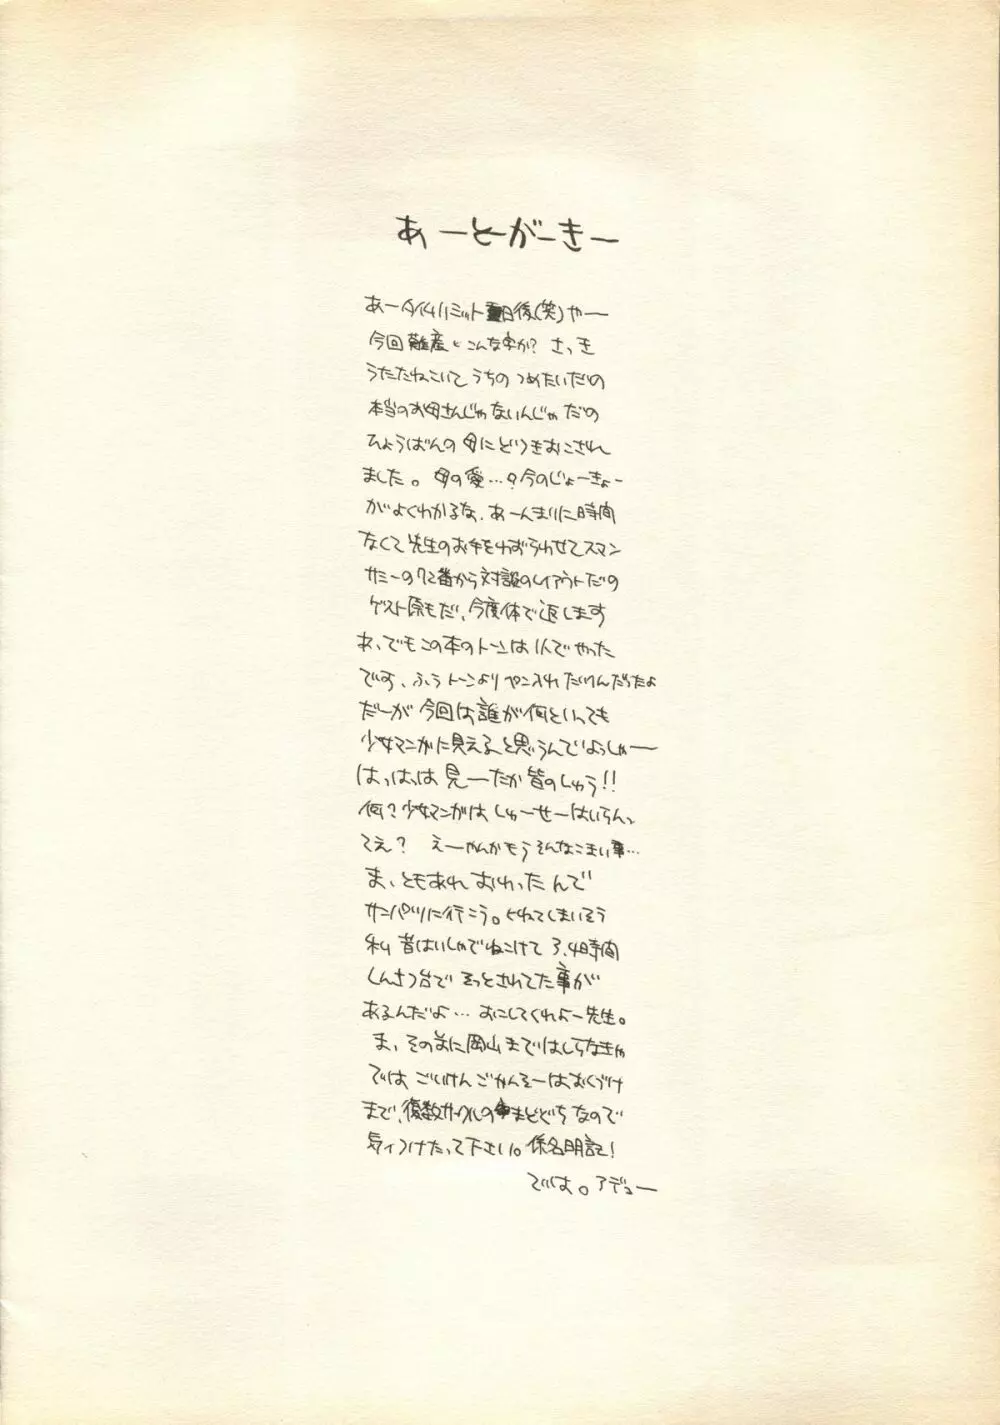 あーとーがーきー
あータイムリミット 日後(笑)やー
今回難産 こんな字か? さっき
うたたねこいて うちの つめたいだの
本当のお母さんじゃないんじゃ だの
ひょうばんの 母に どつきおこされ
ました。 母の愛…?今のじょーきょー
がよくわかるな、あーんまりに時間
なくて 先生のお手をわずらわせてスマン
サミーの72番から対談のレイアウトだの
ゲスト原もだ、今度体で返します
あ、でもこの本のトーンは1人でやった
です、ふう トーンより ペン入れ だけんだったよ
だーが 今回は誰が何といっても
少女マンガに見えると思うんでよっしゃー
はっはっは 見ーたか皆のしゅう!!
何?少女マンガは しゅーせーはいらんっ
てえ? えーやんかもう そんなこまい事…
ま、ともあれ おわったんで
サンパツに行こう。 てしまいそう
私 昔はいしゃでねこけて 3、4時間
しんさつ台で そっとされてた事が
あるんだよ… おこしてくれよー先生。
ま、その前に岡山まではしらなきゃ
では ごいけん ごかんそーは おくづけ
まで、復数サークルの まどぐち なので
気ィつけたって下さい。係名明記!
では。アデュー